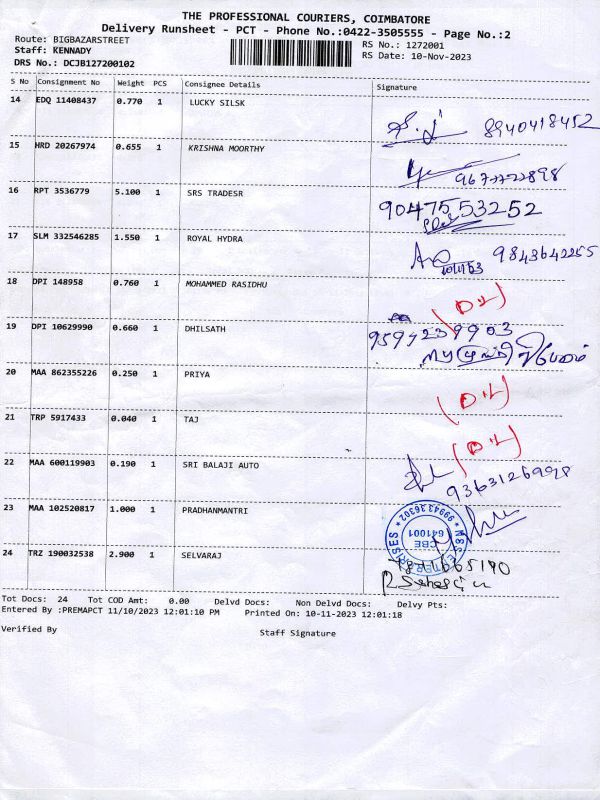 THE PROFESSIONAL COURIERS, COIMBATORE
Delivery Runsheet - PCT - Phone No.:0422-3505555 - Page No.:2
Route: BIGBAZARSTREET
RS No.: 1272001
Staff: KENNADY
RS Date: 10-Nov-2023
DRS No.: DCJB127200102
S No Consignment No Weight PCS Consignee Details Signature
14 EDQ 11408437 0.770 1 LUCKY SILSK
8940418452
15 HRD 20267974 0.655 1 KRISHNA MOORTHY
16 RPT 3536779 5.100 1 SRS TRADESR
9047553252
17 SLM 332546285 1.550 1 ROYAL HYDRA
9843642255
18 DPI 148958 0.760 1 MOHAMMED RASIDHU
19 DPI 10629990 0.660 1 DHILSATH
20 MAA 862355226 0.250 1 PRIYA
21 TRP 5917433 0.040 1 TAJ
22 MAA 600119903 0.190 1 SRI BALAJI AUTO
23 MAA 102520817 1.000 1 PRADHANMANTRI
9994336302
CBE
641001
24 TRZ 190032538 2.900 1 SELVARAJ
Tot Docs: 24 Tot COD Amt: 0.00 Delvd Docs: Non Delvd Docs: Delvy Pts:
Entered By :PREMAPCT 11/10/2023 12:01:10 PM Printed On: 10-11-2023 12:01:18
Verified By Staff Signature